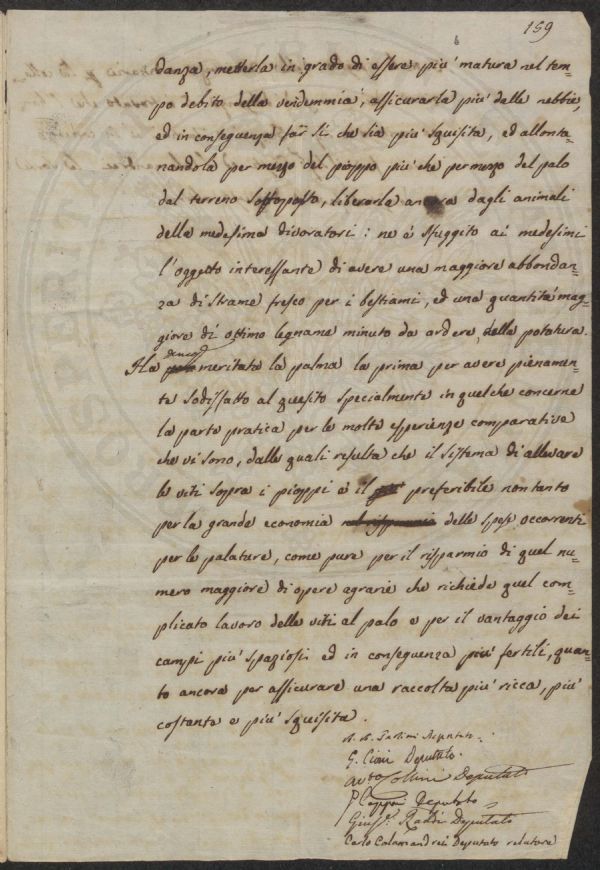 159
danza, metterla in grado di essere piu' matura nel tem=
po debito della vendemmia, assicurarla piu' dalle nebbie,
ed in conseguenza far si che sia piu' squisita, ed allonta=
nandola per mezzo del pioppo piu' che per mezzo del palo
dal terreno sottoposto, liberarla ancora dagli animali
della medesima divoratori: ne è sfuggito ai medesimi
l'oggetto interessante di avere una maggiore abbondan=
za di strame fresco per i bestiami, ed una quantità mag=
giore di ottimo legname minuto da ardere, della potatura.
Ha meritata la palma la prima per avere pienamen=
te sodisfatto al quesito specialmente in quel che concerne
la parte pratica per le molte esperienze comparative
che vi sono, dalle quali resulta che il sistema di allevare
le viti sopra i pioppi è il preferibile non tanto
per la grande economia delle spese occorrenti
per le palature, come pure per il risparmio di quel nu=
mero maggiore di opere agrarie che richiede quel com=
plicato lavoro delle viti al palo e per il vantaggio dei
campi piu' spaziosi ed in conseguenza piu' fertili, quan=
to ancora per assicurare una raccolta piu' ricca, piu'
costante e piu' squisita.
Deputato.
G. Cioni Deputato.
Deputato
Deputato
Gius. Raddi Deputato
Carlo Calamandrei Deputato relatore